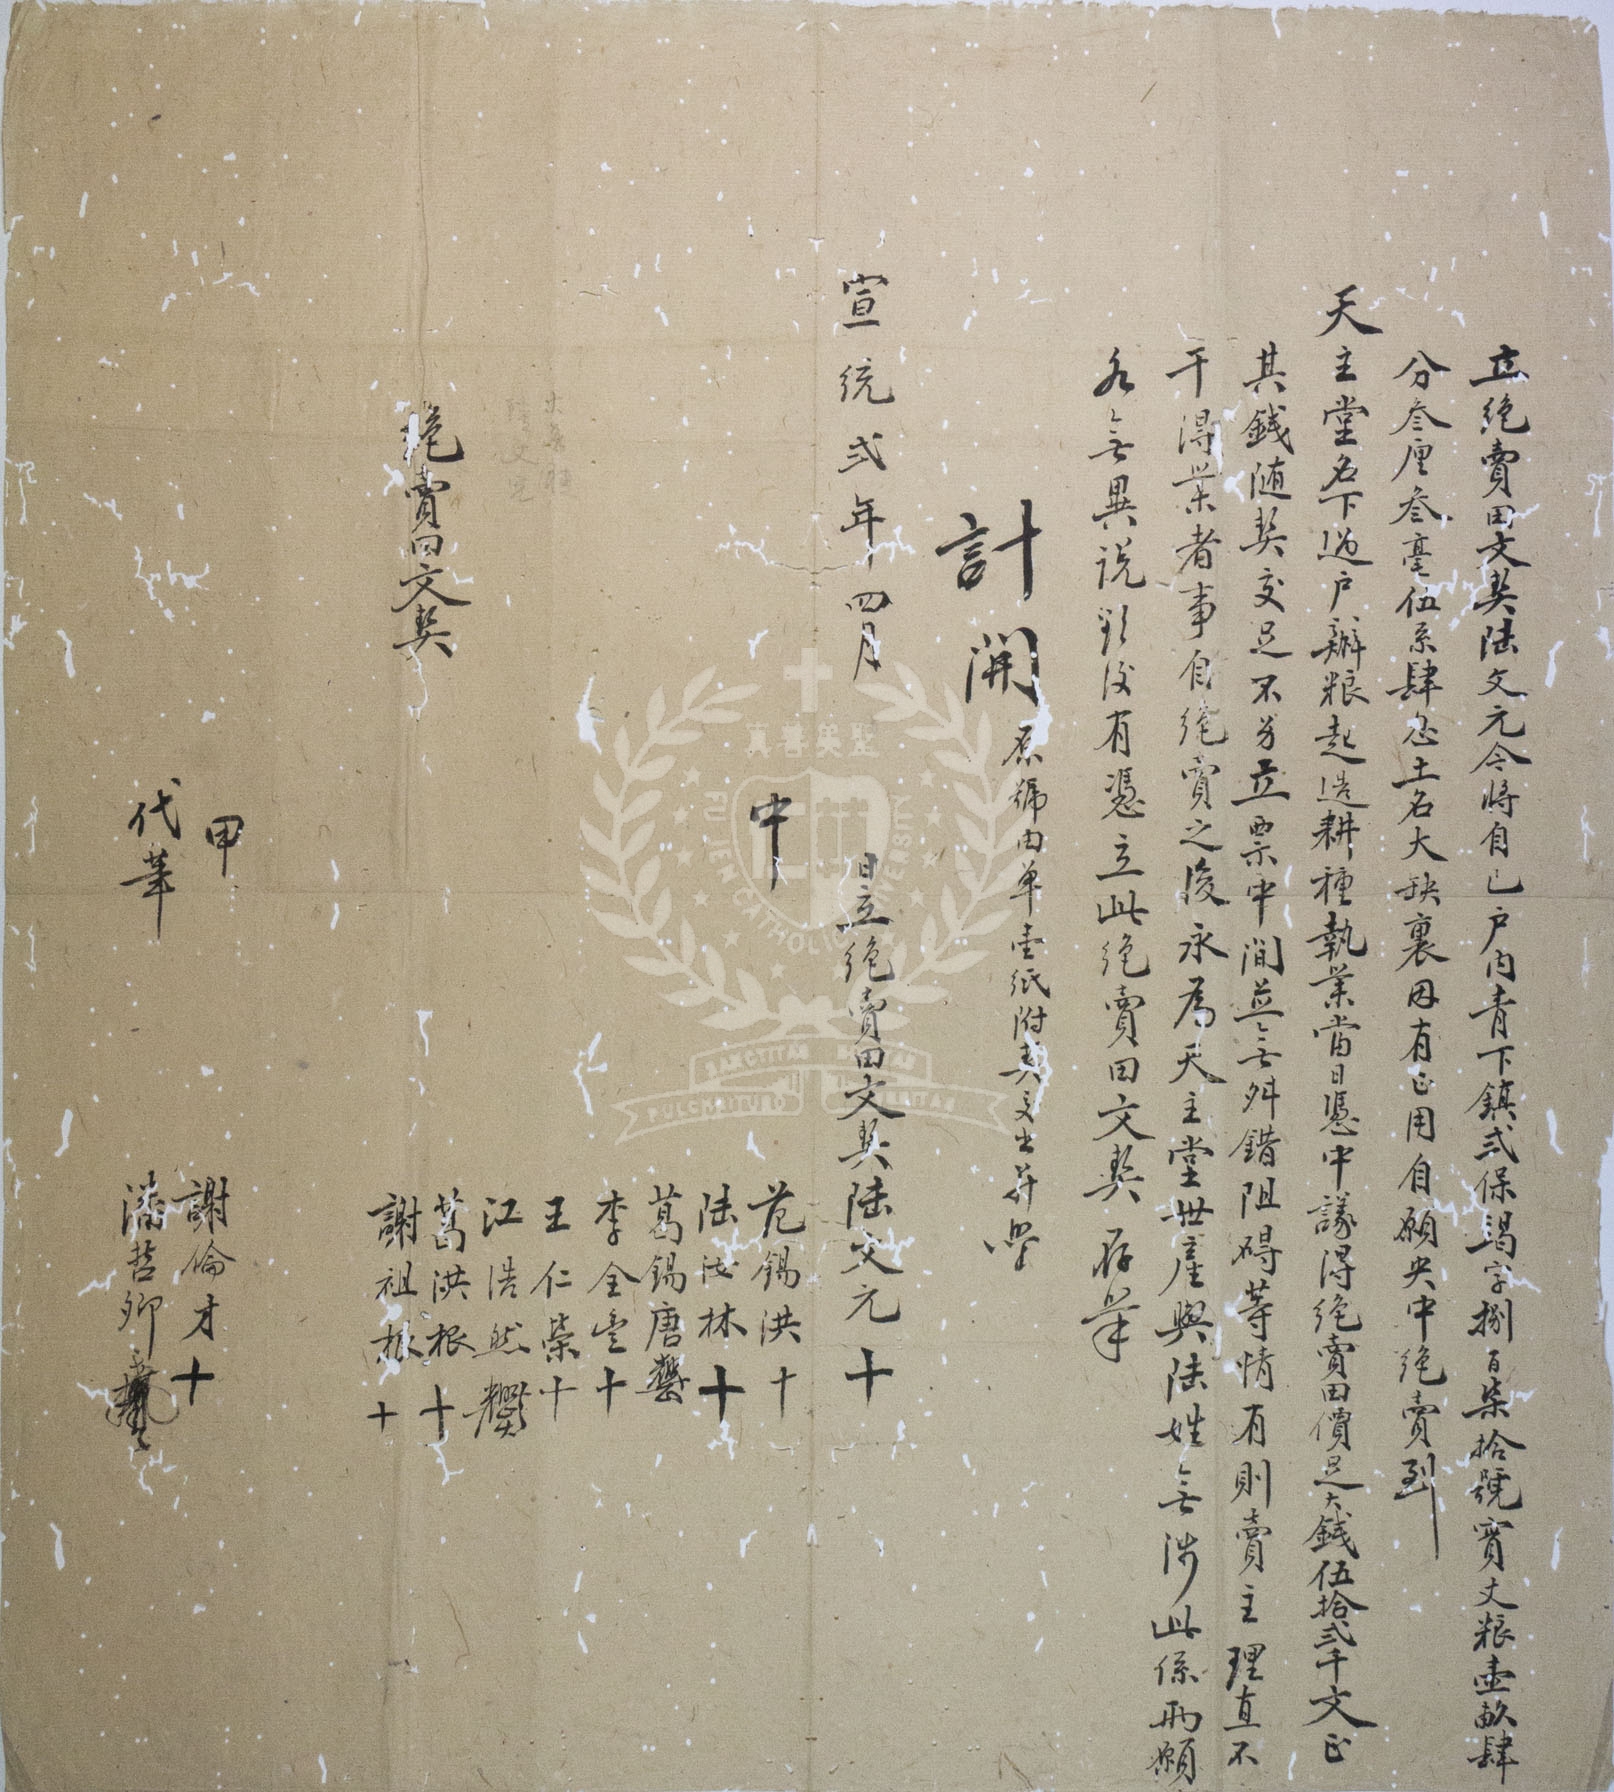 立絶賣田文契陆文元今將自己户内青下鎮弍保場字捌百柒拾號實丈粮壹畝肆
分叁厘叁毫伍系肆忽土名大缺裏因有正用自願央中絶賣到
天主堂名下過户辦粮起造耕種執業當日憑中議得絶賣田價足大錢伍拾弍千文正
其錢随契交足不另立票中間並無舛錯阻碍等情有則賣主理直不
干得業者事自絶賣之後永為天主堂世産與陆姓無涉此係兩願
各無異説欲後有憑立此絶賣田文契存筆
計開 原號由单壹紙附契交出并照
宣統弍年四月 日立絶賣田文契陆文元十
中 范錫洪十
陆林十
葛錫唐
李全十
王仁榮十
江浩然
葛洪根十
謝祖根十
絶賣田文契
甲 謝倫才十
代筆 潘哲卿
FU JEN CATHOLIC UNIVERSITY
聖美善真
SANCTITAS BONITAS
PULCHRITUDO VERITAS